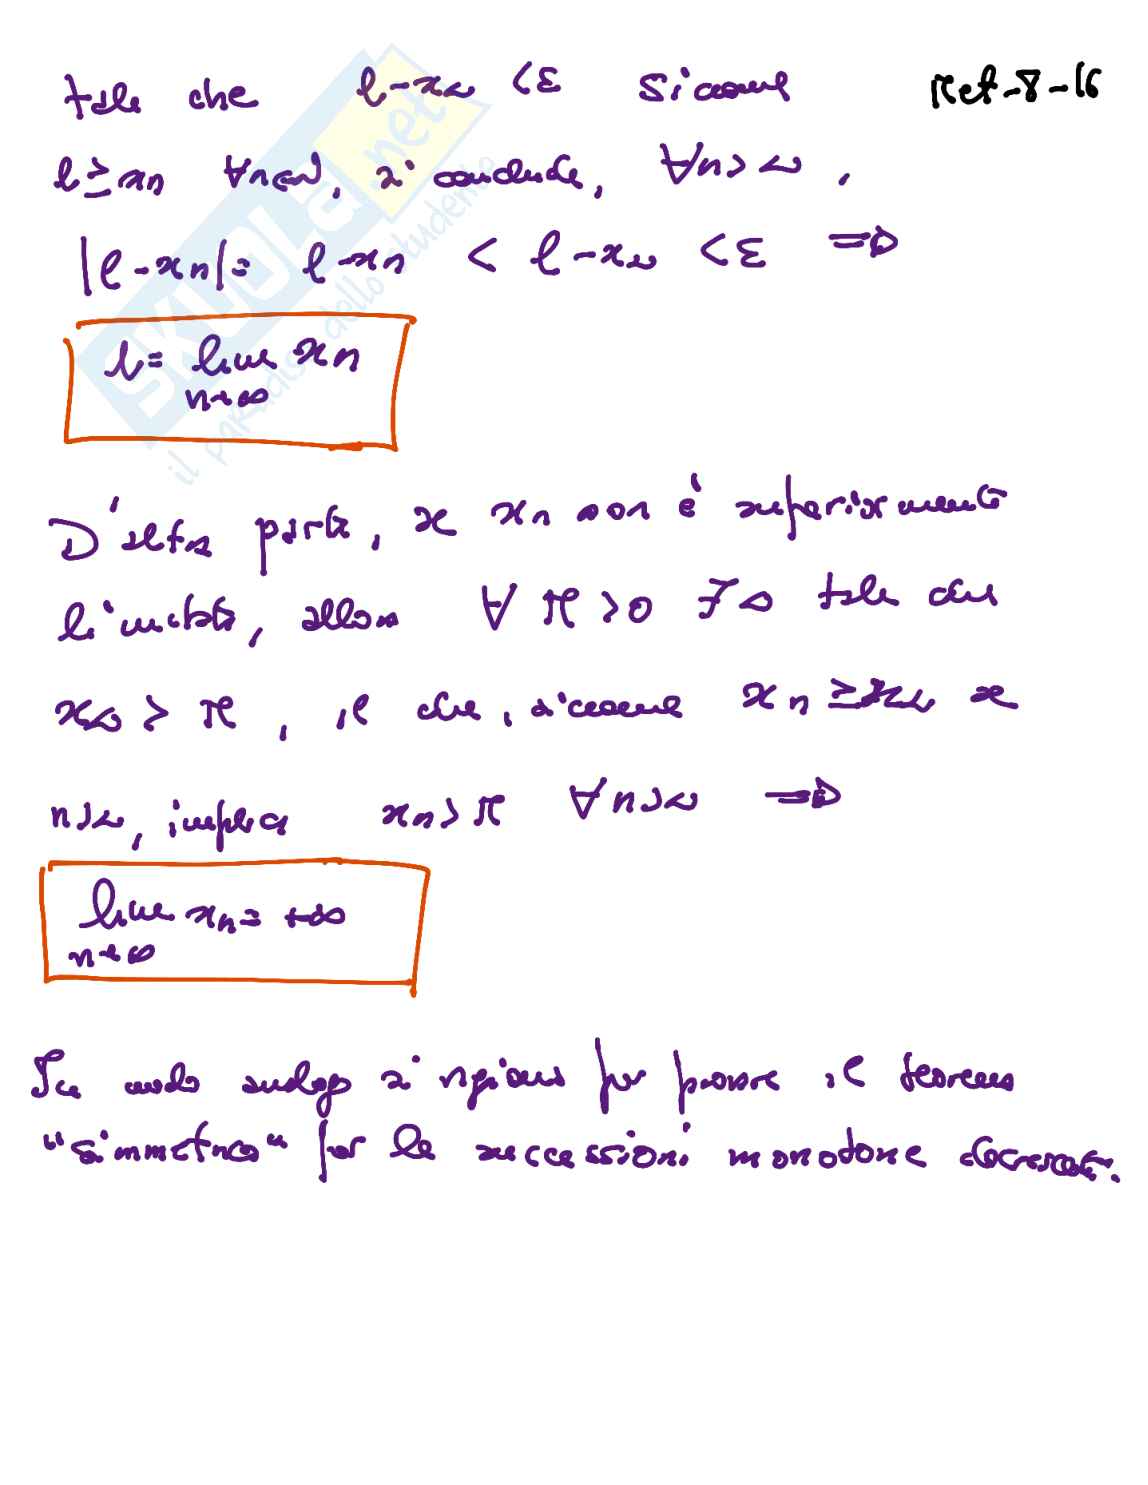 tale che l - xν < ε Siccome Met-8-16
l ≥ xn ∀n∈N, si conclude, ∀n > ν,
|l - xn| = l - xn < l - xν < ε ⇒
l = lim xn
n→∞
D'altra parte, se xn non è superiormente
limitata, allora ∀ M > 0 ∃ ν tale che
xν > M, il che, siccome xn ≥ xν se
n > ν, implica xn > M ∀n > ν ⇒
lim xn = +∞
n→∞
In modo analogo si ragiona per provare il teorema
"simmetrico" per le successioni monotone decrescenti.
SKUOLA.net
il paradiso dello studente